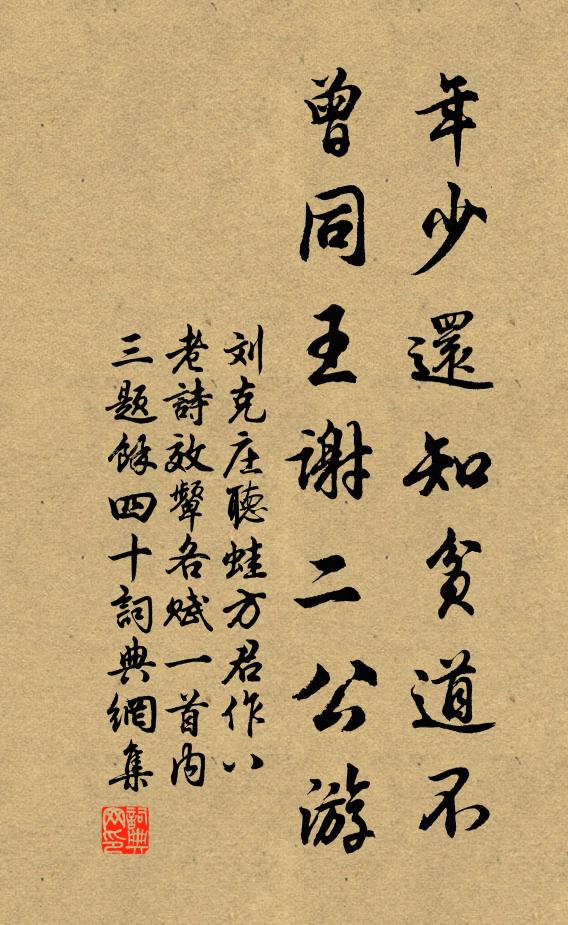 年少還知貧道不
曾同王謝二公游
刘克庄聽蛙方君作八
老詩效顰各赋一首内
三題餘四十詞典網集
詞典网印